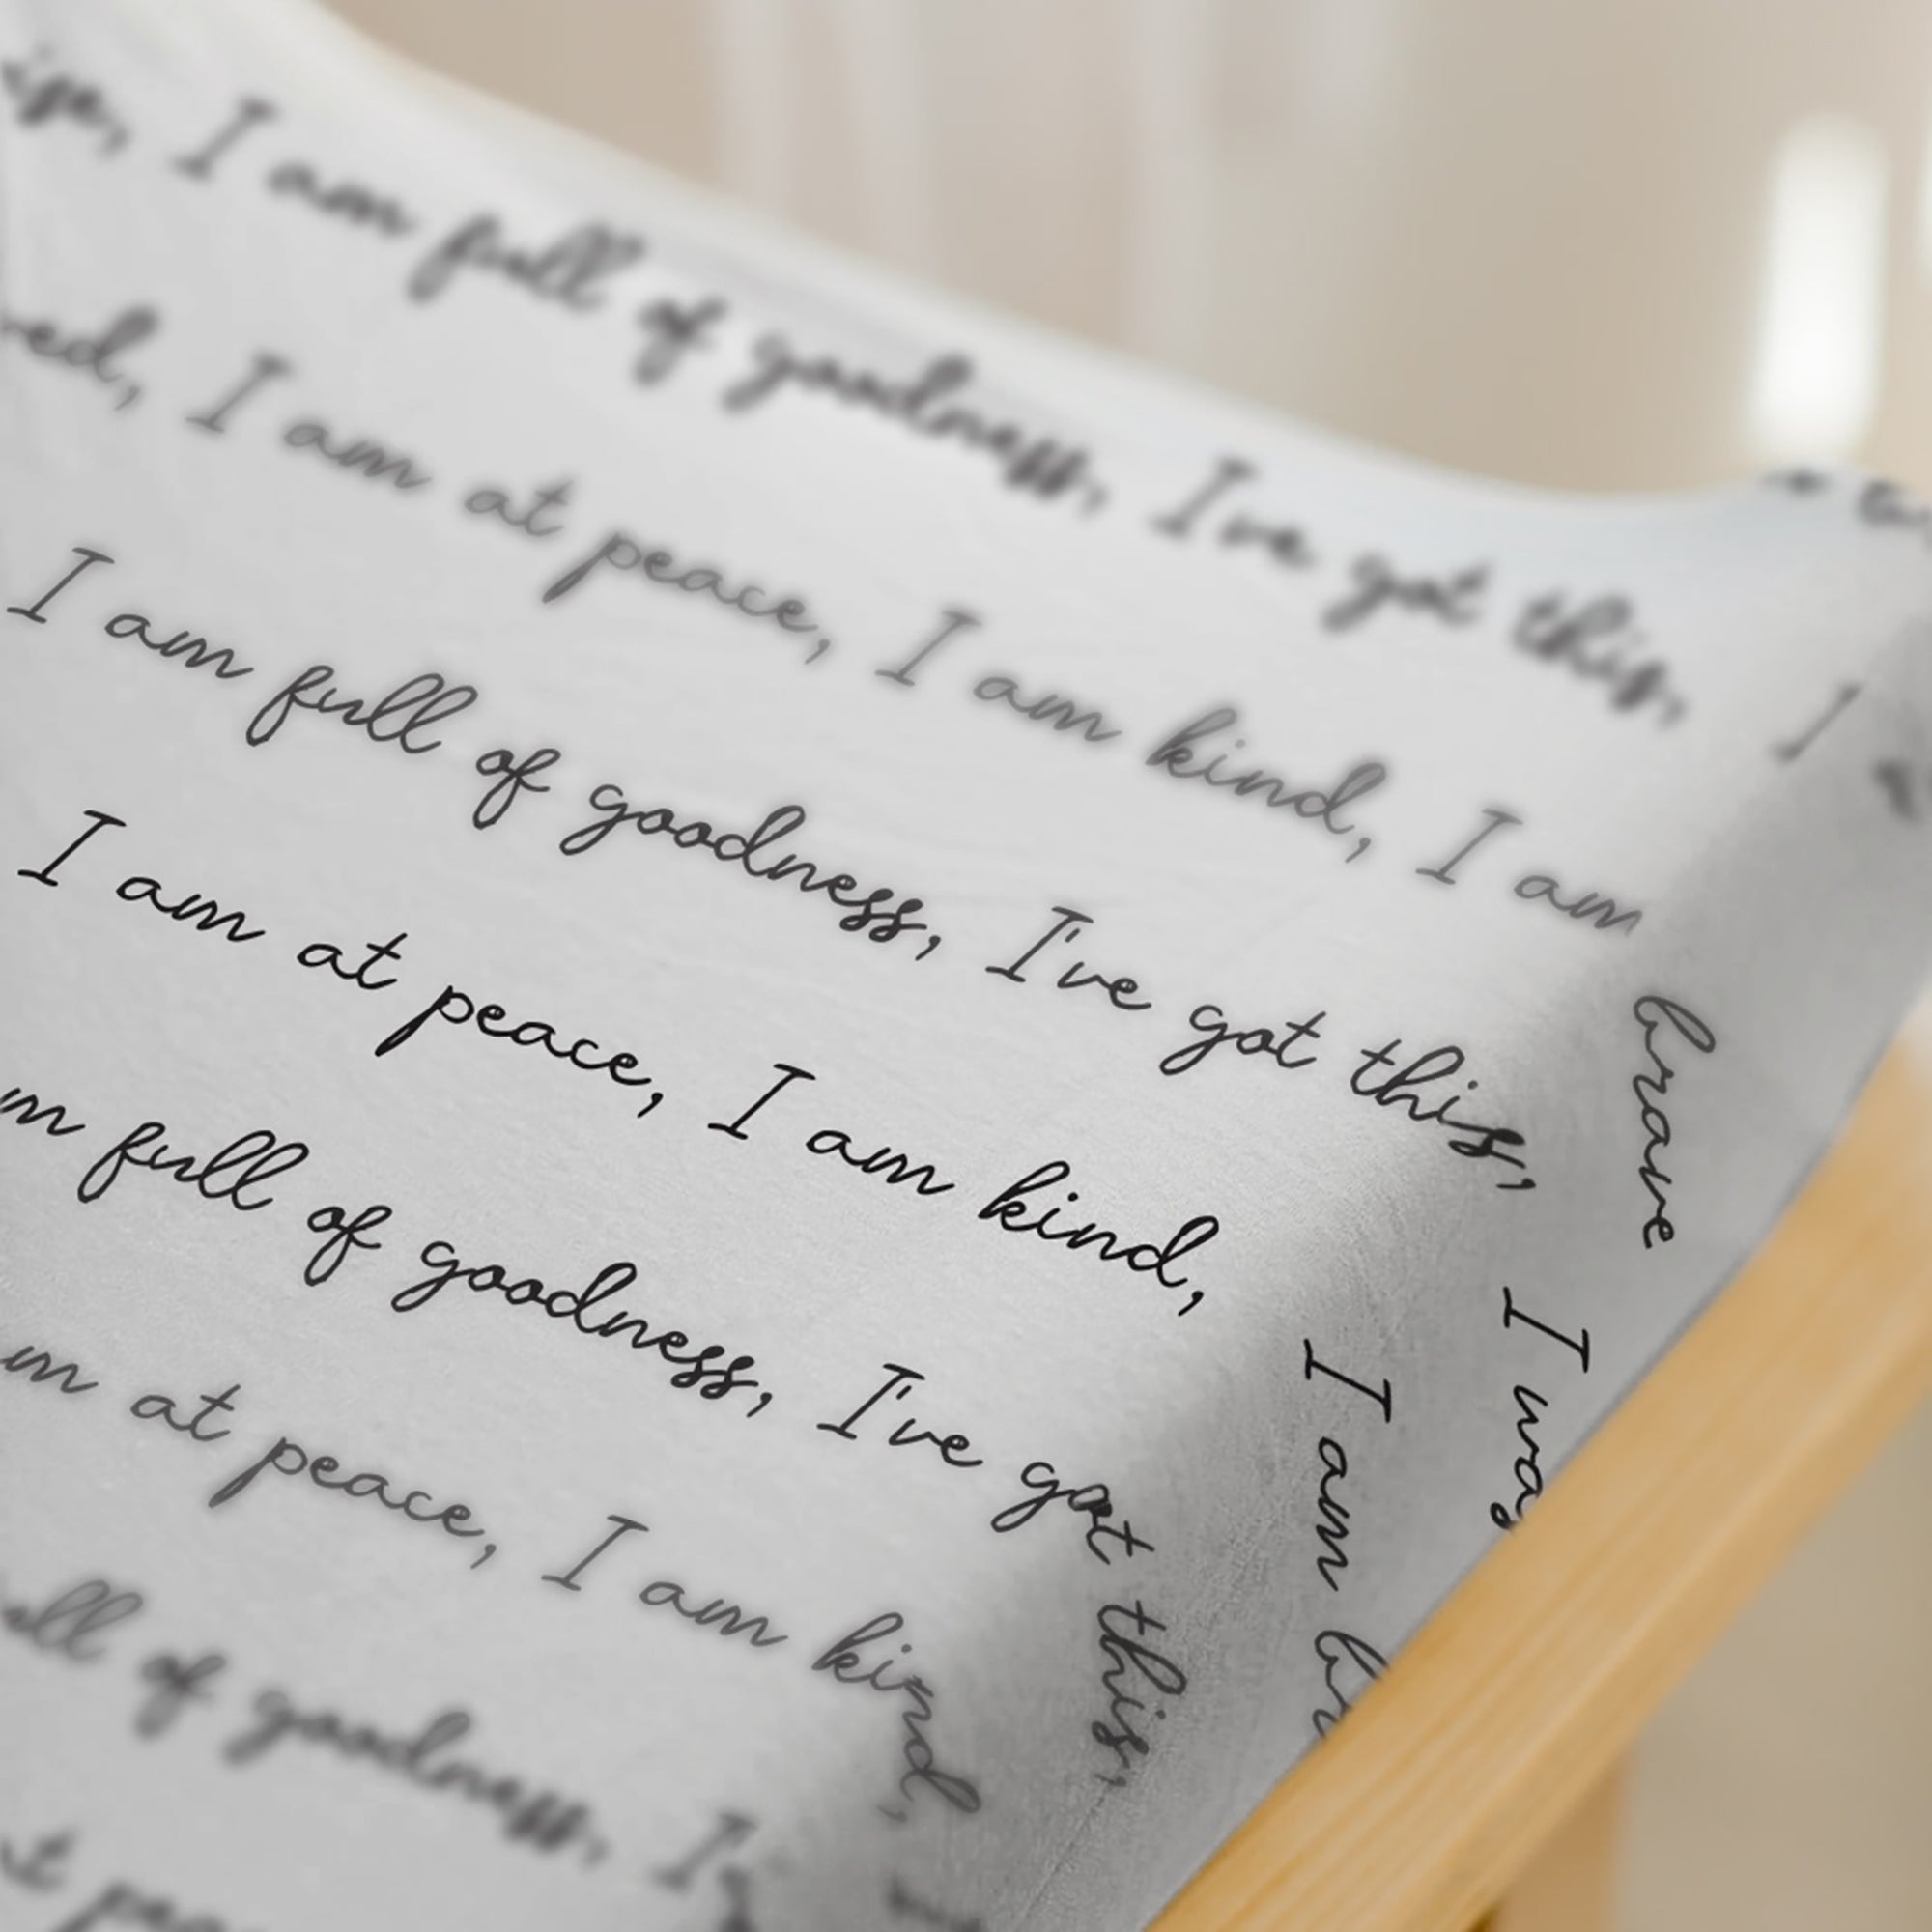 I am full of goodness, I've got this, I
I am at peace, I am kind, I am brave
I am full of goodness, I've got this, I
I am at peace, I am kind, I am
full of goodness, I've got this,
at peace, I am kind,
of goodness,